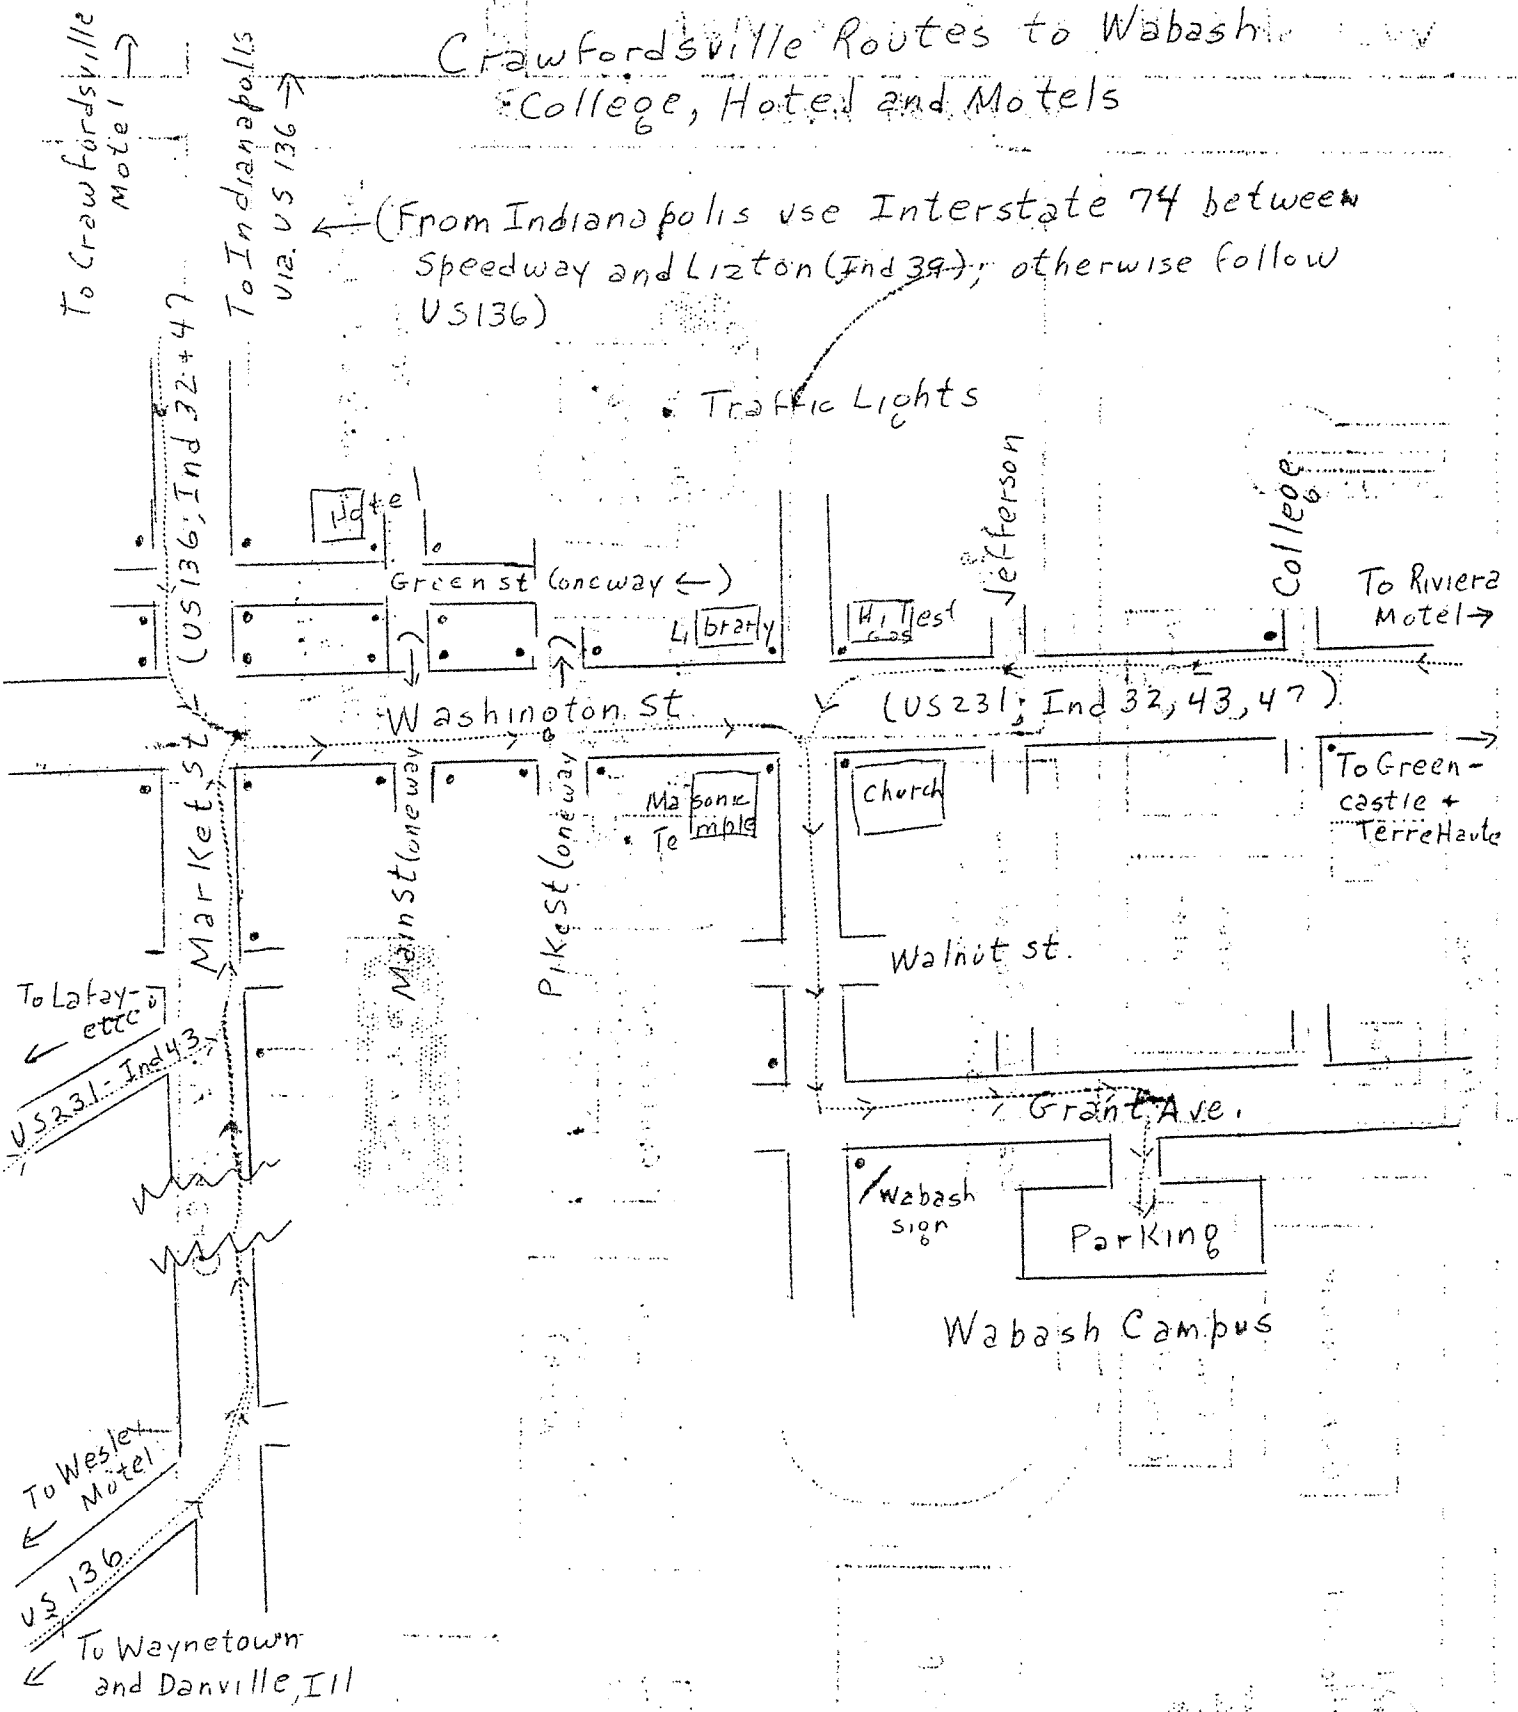 Crawfordsville Routes to Wabash
College, Hotel and Motels
To Crawfordsville
Motel
To Indianapolis
via. US 136
(From Indianapolis use Interstate 74 between
Speedway and Lizton (Ind 39); otherwise follow
US136)
Traffic Lights
Market st (US136; Ind 32+47
Hotel
Green st (oneway ←)
Jefferson
College
To Riviera
Motel →
Library
Hi Test
Gas
Washington St
(US231; Ind 32, 43, 47)
Main St (oneway →)
Pike St (oneway →)
Masonic
Temple
Church
To Green-
castle +
Terre Haute
Walnut st.
To Lafay-
ette
US231-Ind43
Grant Ave.
Wabash
sign
Parking
Wabash Campus
To Wesley
Motel
US 136
To Waynetown
and Danville, Ill